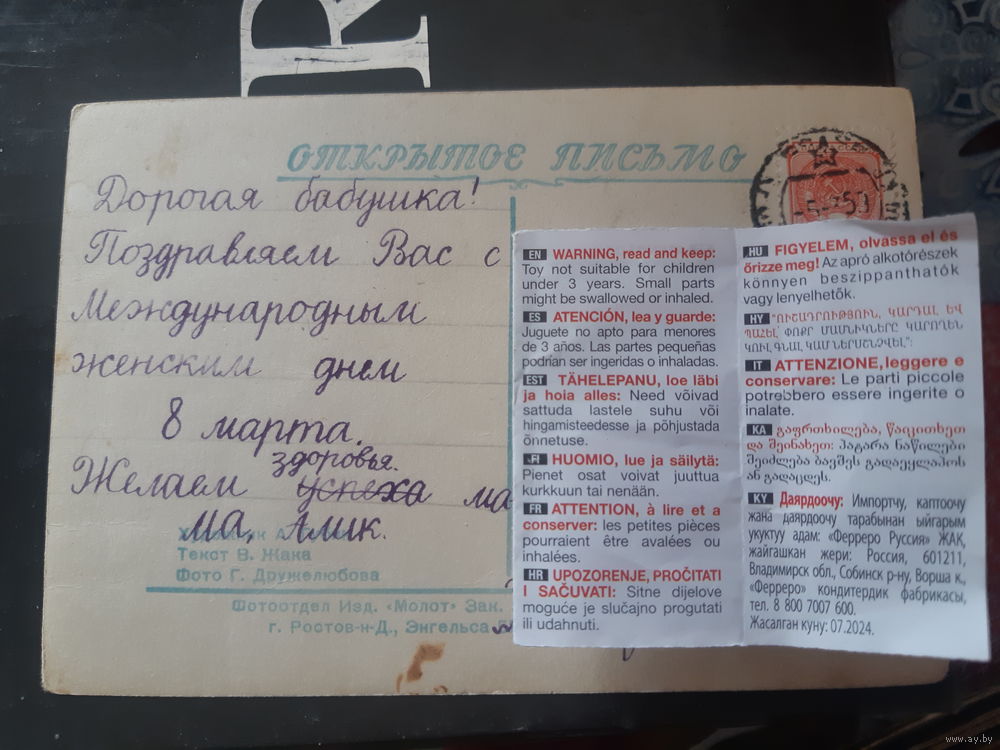 R
ОТКРЫТОЕ ПИСЬМО
Дорогая бабушка!
Поздравляем Вас с
Международным
женским днем
8 марта.
здоровья.
Желаем успеха ма
ма, Алик.
Текст В. Жака
Фото Г. Дружелюбова
Фотоотдел Изд. «Молот» Зак.
г. Ростов-н-Д., Энгельса
EN WARNING, read and keep:
Toy not suitable for children
under 3 years. Small parts
might be swallowed or inhaled.
ES ATENCIÓN, lea y guarde:
Juguete no apto para menores
de 3 años. Las partes pequeñas
podrían ser ingeridas o inhaladas.
EST TÄHELEPANU, loe läbi
ja hoia alles: Need võivad
sattuda lastele suhu või
hingamisteedesse ja põhjustada
õnnetuse.
FI HUOMIO, lue ja säilytä:
Pienet osat voivat juuttua
kurkkuun tai nenään.
FR ATTENTION, à lire et a
conserver: les petites pièces
pourraient être avalées ou
inhalées.
HR UPOZORENJE, PROČITATI
I SAČUVATI: Sitne dijelove
moguće je slučajno progutati
ili udahnuti.
HU FIGYELEM, olvassa el és
őrizze meg! Az apró alkotórészek
könnyen beszippanthatók
vagy lenyelhetők.
HY "ՈՒՇԱԴՐՈՒԹՅՈՒՆ, ԿԱՐԴԱԼ ԵՎ
ՊԱՀԵԼ՝ ՓՈՔՐ ՄԱՍՆԻԿՆԵՐԸ ԿԱՐՈՂԵՆ
ԿՈՒԼ ԳՆԱԼ ԿԱՄ ՆԵՐՇՆՉՎԵԼ":
IT ATTENZIONE, leggere e
conservare: Le parti piccole
potrebbero essere ingerite o
inalate.
KA გაფრთხილება, წაიკითხეთ
და შეინახეთ: პატარა ნაწილები
შეიძლება ბავშვს გადაეყლაპოს
ან გადაცდეს.
KY Даярдоочу: Импортчу, каптоочу
жана даярдоочу тарабынан ыйгарым
укуктуу адам: «Ферреро Руссия» ЖАК,
жайгашкан жери: Россия, 601211,
Владимирск обл., Собинск р-ну, Ворша к.,
«Ферреро» кондитердик фабрикасы,
тел. 8 800 7007 600.
Жасалган куну: 07.2024.
www.ay.by